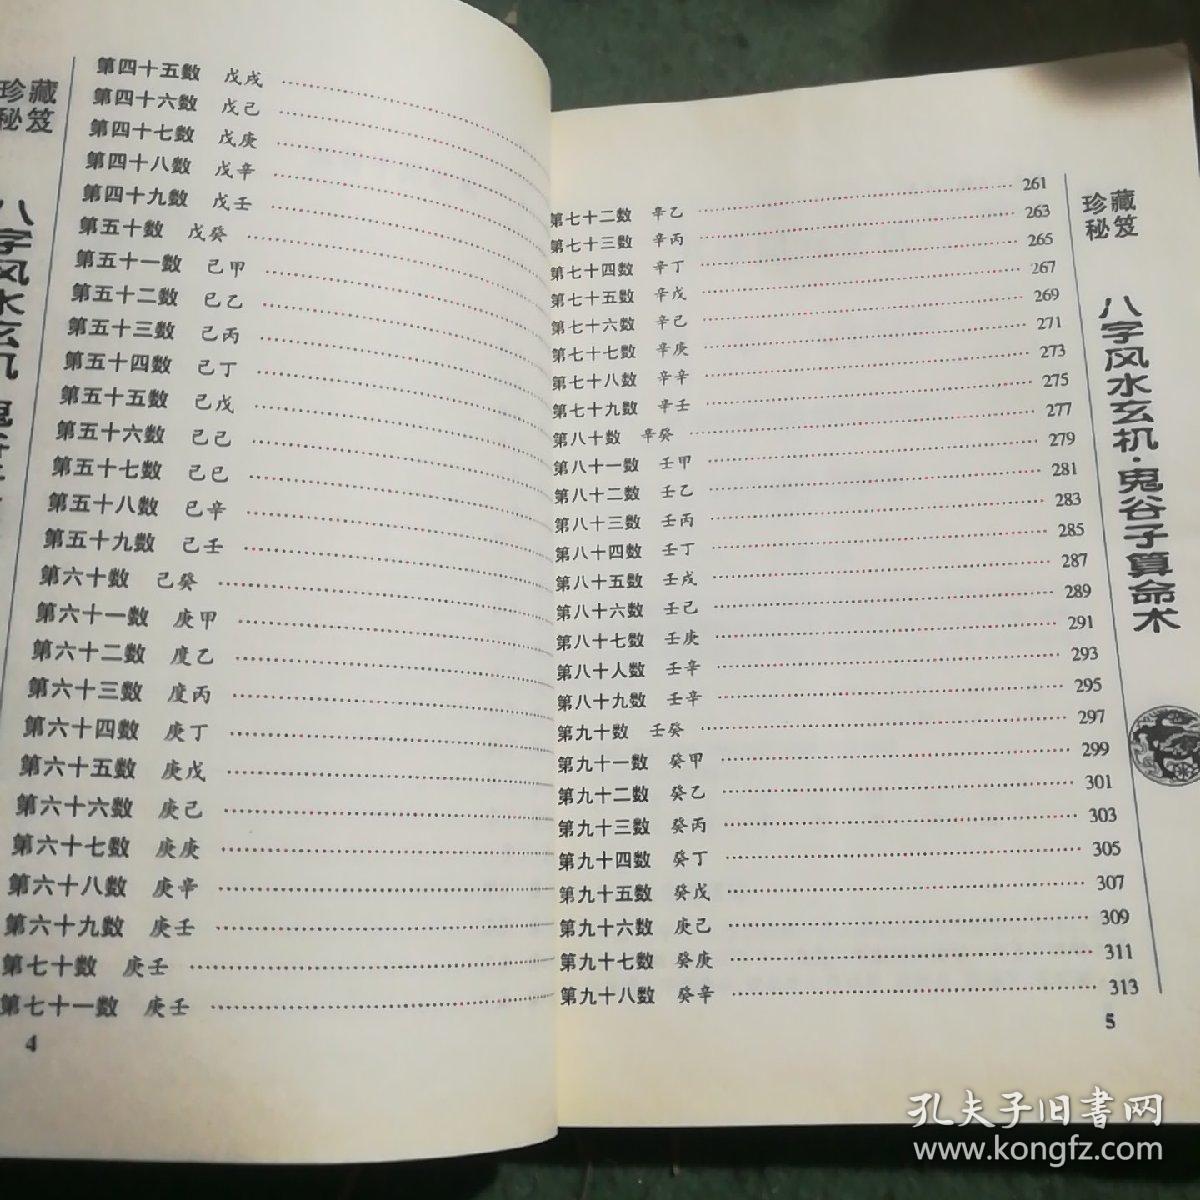 珍藏
秘笈
第四十五数 戊戌
第四十六数 戊己
第四十七数 戊庚
第四十八数 戊辛
第四十九数 戊壬
第五十数 戊癸
第五十一数 己甲
第五十二数 已乙
第五十三数 己丙
第五十四数 己丁
第五十五数 己戊
第五十六数 己己
第五十七数 己巳
第五十八数 己辛
第五十九数 己壬
第六十数 己癸
第六十一数 庚甲
第六十二数 度乙
第六十三数 度丙
第六十四数 庚丁
第六十五数 庚戊
第六十六数 庚己
第六十七数 庚庚
第六十八数 庚辛
第六十九数 庚壬
第七十数 庚壬
第七十一数 庚壬
4
八字风水玄机
第七十二数 辛乙 261
第七十三数 辛丙 263
第七十四数 辛丁 265
第七十五数 辛戊 267
第七十六数 辛己 269
第七十七数 辛庚 271
第七十八数 辛辛 273
第七十九数 辛壬 275
第八十数 辛癸 277
第八十一数 壬甲 279
第八十二数 壬乙 281
第八十三数 壬丙 283
第八十四数 壬丁 285
第八十五数 壬戌 287
第八十六数 壬己 289
第八十七数 壬庚 291
第八十人数 壬辛 293
第八十九数 壬辛 295
第九十数 壬癸 297
第九十一数 癸甲 299
第九十二数 癸乙 301
第九十三数 癸丙 303
第九十四数 癸丁 305
第九十五数 癸戊 307
第九十六数 庚己 309
第九十七数 癸庚 311
第九十八数 癸辛 313
5
珍藏
秘笈
八字风水玄机·鬼谷子算命术
孔夫子旧书网
www.kongfz.com